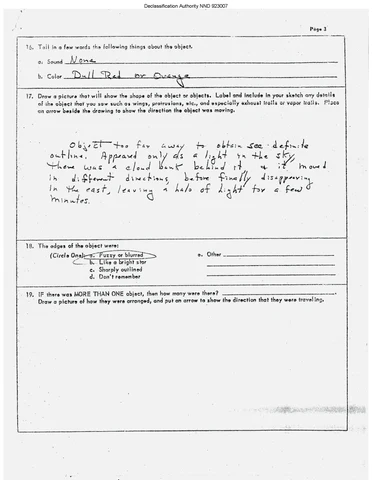 Declassification Authority NND 923007
Page 3
16. Tell in a few words the following things about the object.
a. Sound None
b. Color Dull Red or Orange
17. Draw a picture that will show the shape of the object or objects. Label and include in your sketch any details
of the object that you saw such as wings, protrusions, etc., and especially exhaust trails or vapor trails. Place
an arrow beside the drawing to show the direction the object was moving.
Object too far away to obtain see definite
outline. Appeared only as a light in the sky.
There was a cloud bank behind it & it moved
in different directions before finally disappearing
in the east, leaving a halo of light for a few
minutes.
18. The edges of the object were:
(Circle One): a. Fuzzy or blurred e. Other
b. Like a bright star
c. Sharply outlined
d. Don't remember
19. IF there was MORE THAN ONE object, then how many were there?
Draw a picture of how they were arranged, and put an arrow to show the direction that they were traveling.